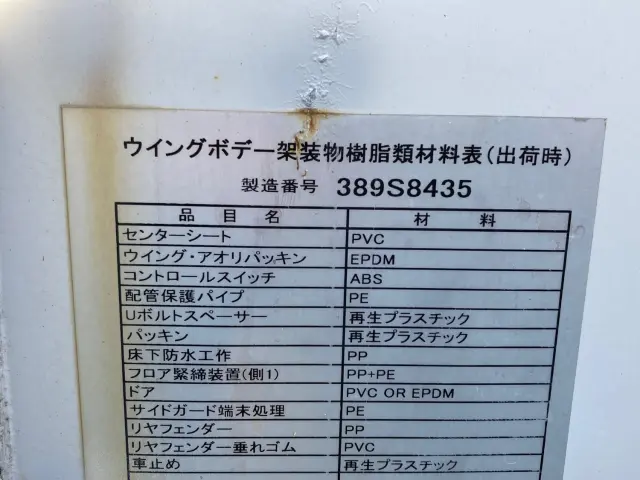 ウイングボデー架装物樹脂類材料表(出荷時)
製造番号 389S8435
品目名 材料
センターシート PVC
ウイング・アオリパッキン EPDM
コントロールスイッチ ABS
配管保護パイプ PE
Uボルトスペーサー 再生プラスチック
パッキン 再生プラスチック
床下防水工作 PP
フロア緊締装置(側1) PP+PE
ドア PVC OR EPDM
サイドガード端末処理 PE
リヤフェンダー PP
リヤフェンダー垂れゴム PVC
車止め 再生プラスチック